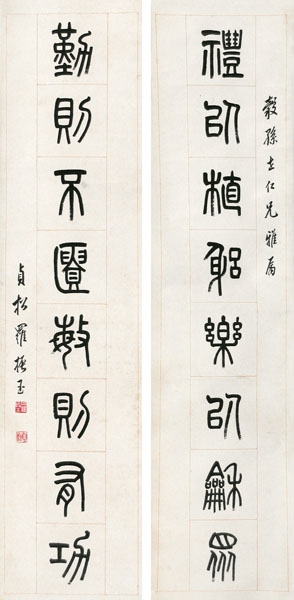 穀孫世仁兄雅屬
禮以植躳樂以龢眾
勤則不匱敏則有功
貞松羅振玉